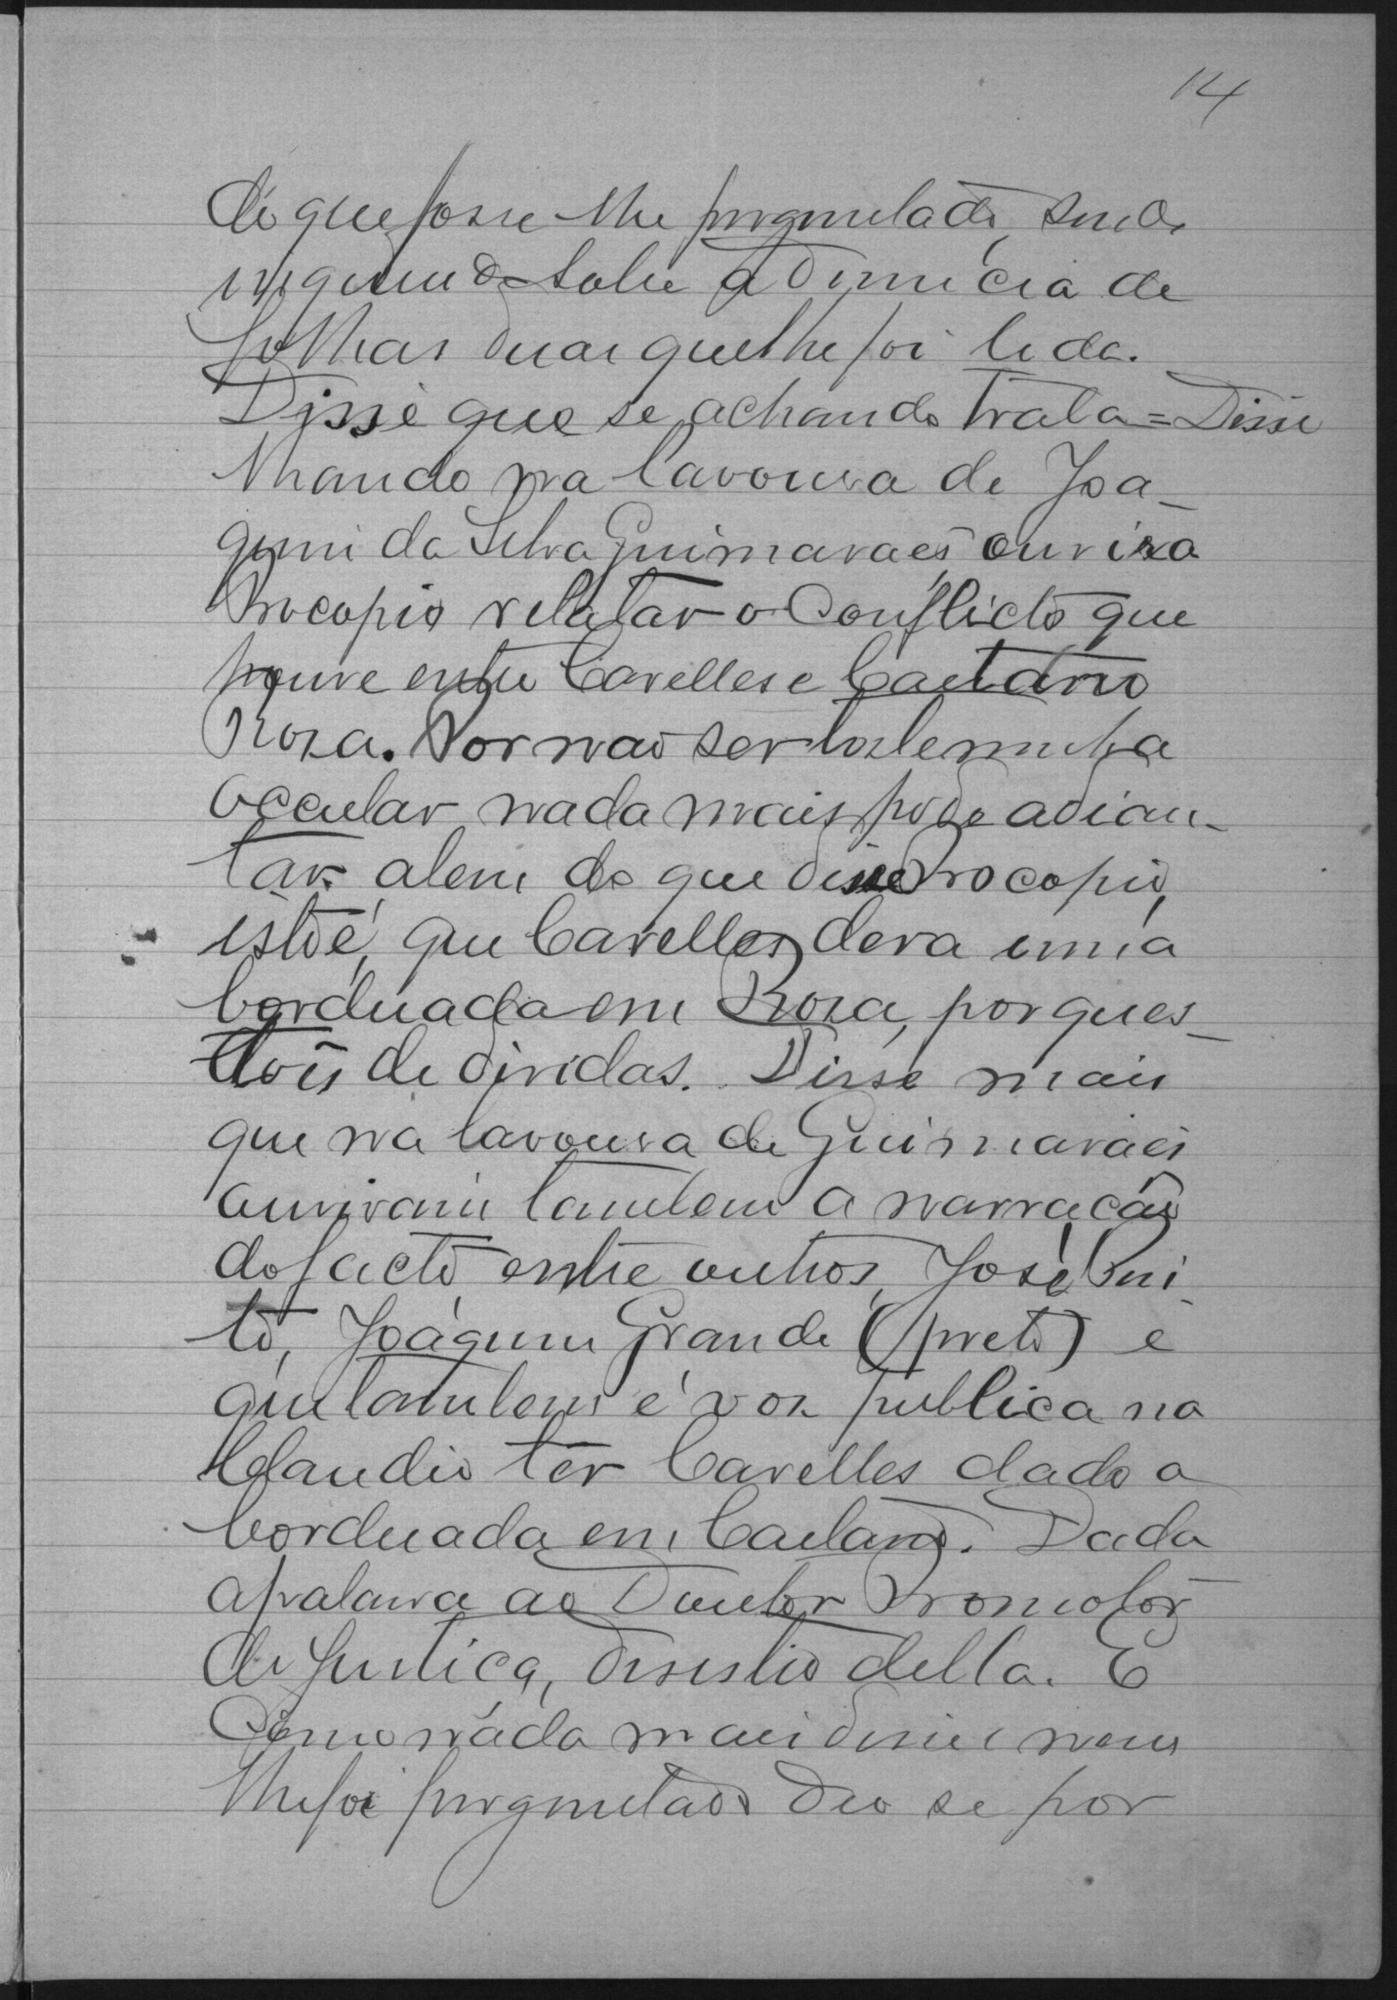 14
de que fosse lhe perguntado, sendo
inquerido sobre a denuncia de
folhas duas que lhe foi lida.
Disse que se achando traba= Disse
lhando na lavoura de Joa-
quim da Silva Guimarães ouvira
Procopio relatar o conflicto que
houve entre Cavelles e Caetano
Rosa. Por não ser testemunha
occular nada mais pode adian-
tar alem do que disse Procopio,
isto é, que Cavelles dera uma
borduada em Rosa, por ques-
tões de dividas. Disse mais
que na lavoura de Guimarães
ouviram tambem a narração
do facto, entre outros, José Pin-
to, Joaquim Grande (preto) e
que tambem é voz publica no
Claudio ter Cavelles dado a
borduada em Caetano. Dada
a palavra ao Doutor Promotor
de Justiça, desistio della. E
como nada mais disse nem
lhe foi perguntado deo se por